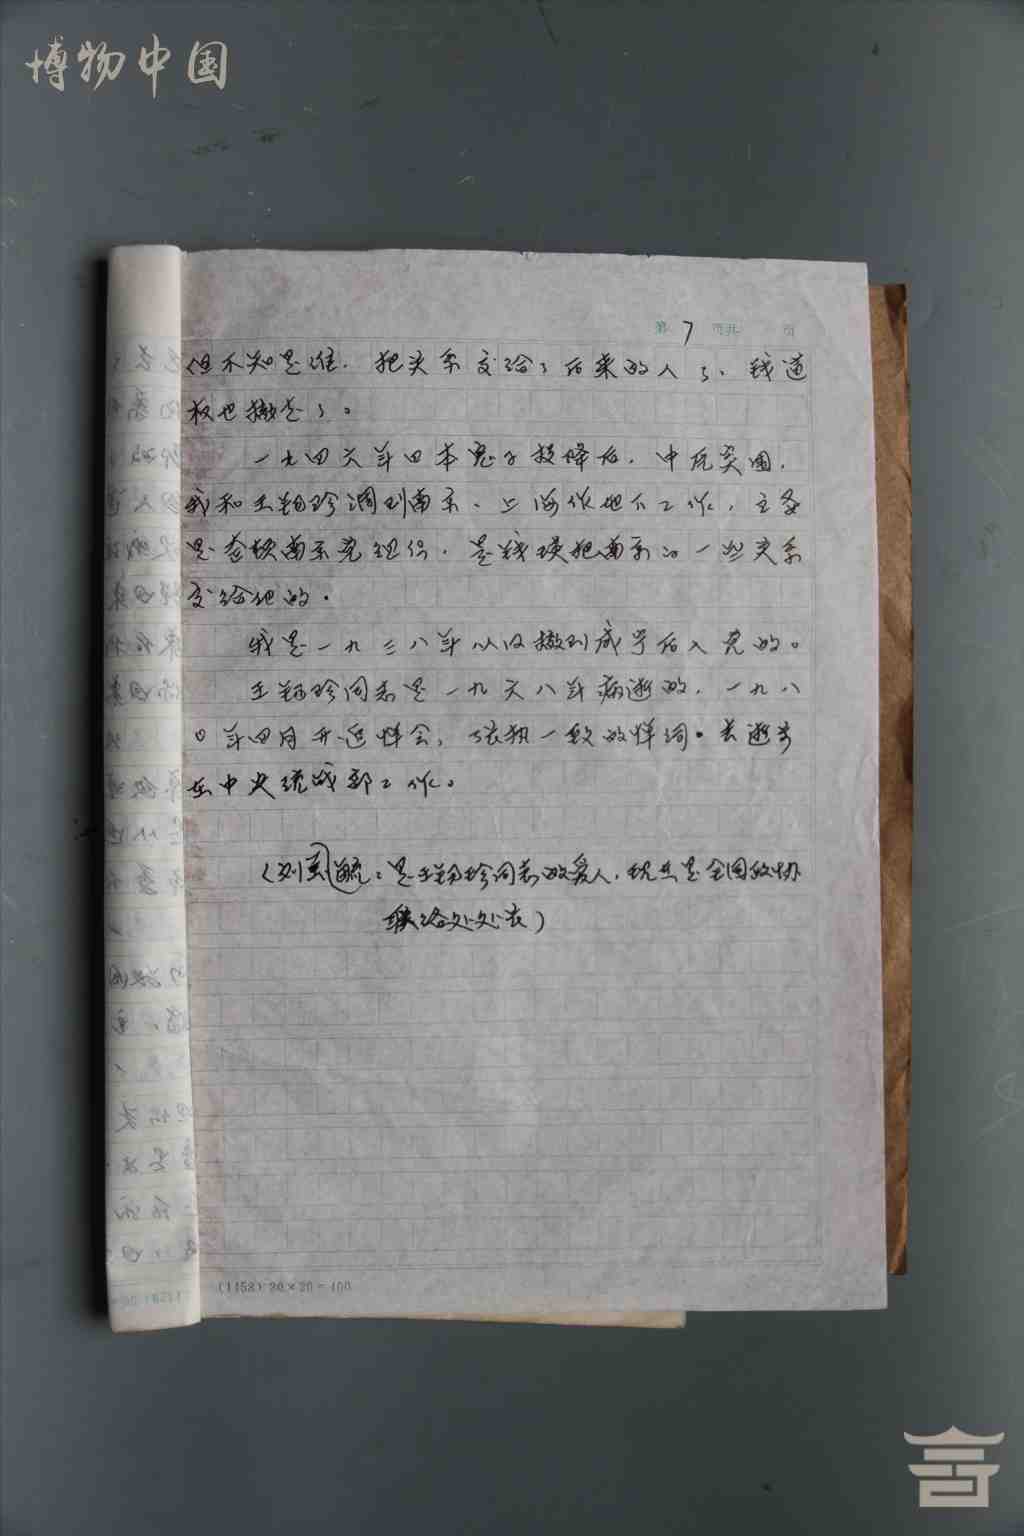 博物中国
第 7 页共 页
但不知是谁. 把关系交给了后来的人了. 钱道
权也撤走了。
一九四六年日本鬼子投降后. 中原突围.
我和王翰珍调到南京、上海作地下工作, 主要
是 南京党组织. 是钱瑛把南京的一些关系
交给他的.
我是一九三八年以后撤到咸宁后入党的。
王翰珍同志是一九六八年病逝的. 一九八
〇年四月开追悼会, 一致的悼词. 去逝前
在中央统战部工作。
(刘 毓: 是王翰珍同志的爱人. 现在是全国政协
联络处处长)
(1158)20×20=400